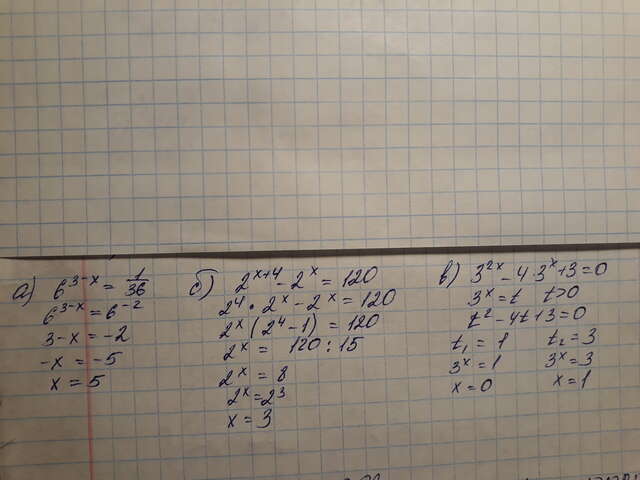 а) 6^(3-x) = 1/36
6^(3-x) = 6^(-2)
3-x = -2
-x = -5
x = 5
б) 2^(x+4) - 2^x = 120
2^4 · 2^x - 2^x = 120
2^x (2^4 - 1) = 120
2^x = 120 : 15
2^x = 8
2^x = 2^3
x = 3
в) 3^(2x) - 4·3^x + 3 = 0
3^x = t t>0
t^2 - 4t + 3 = 0
t₁ = 1 t₂ = 3
3^x = 1 3^x = 3
x = 0 x = 1